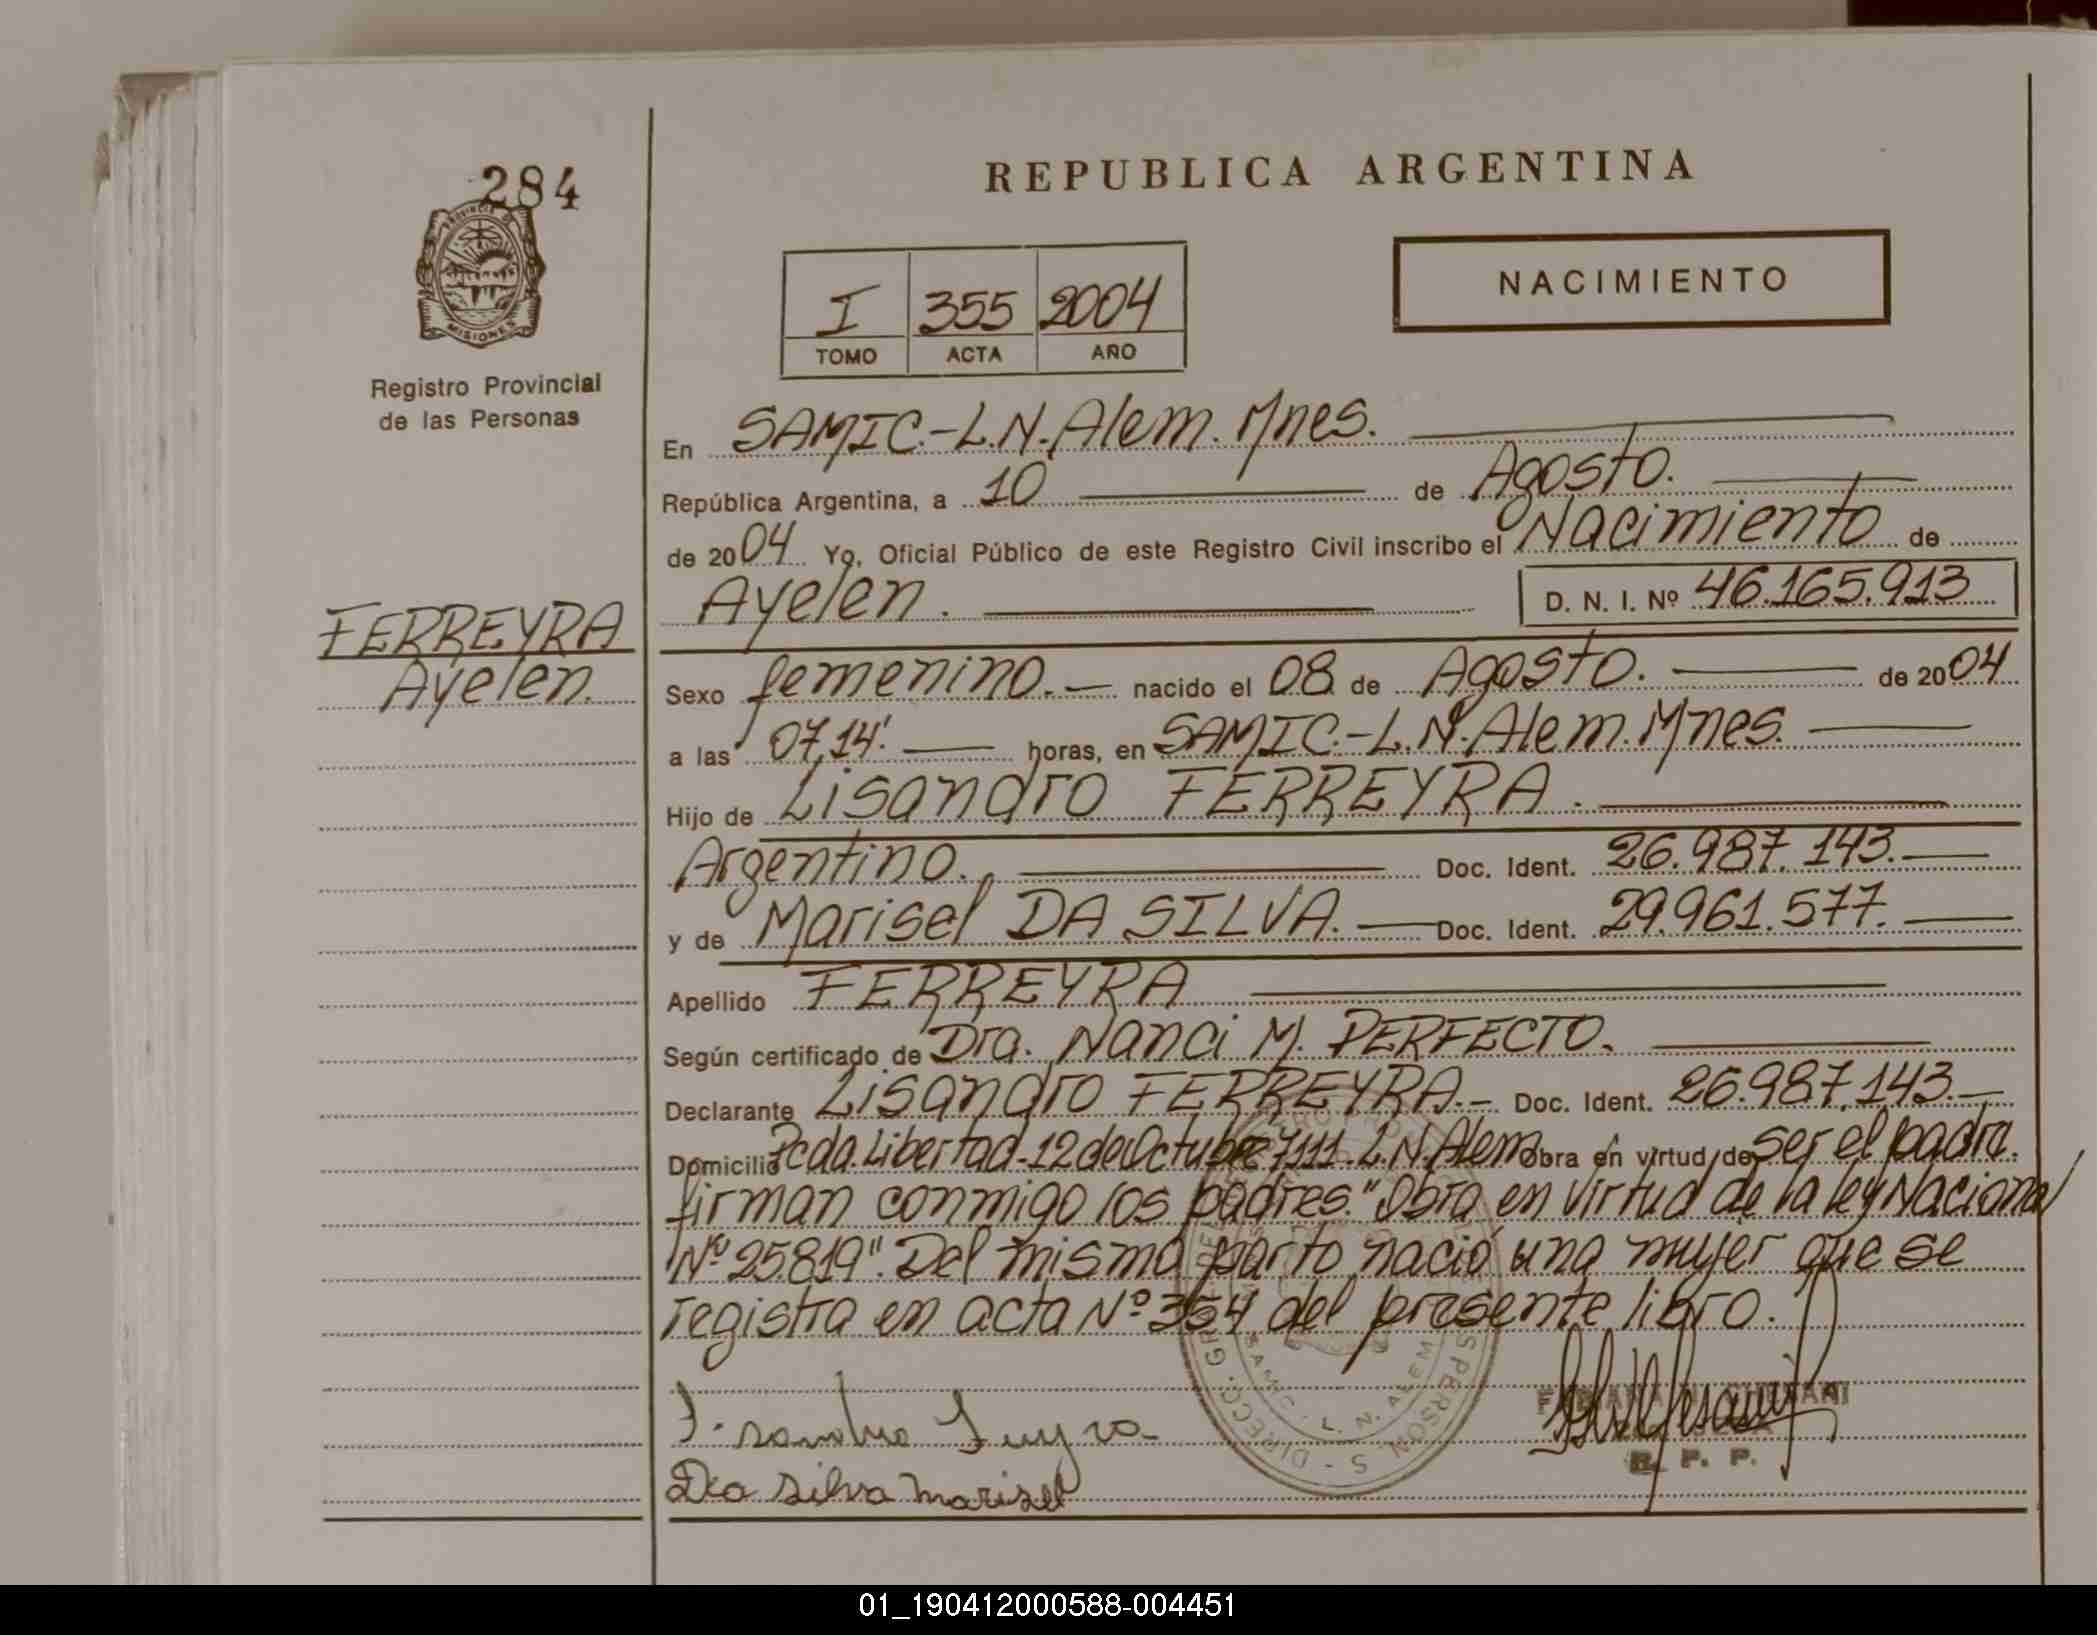 284
PROVINCIA DE
MISIONES
Registro Provincial
de las Personas
FERREYRA
Ayelen.
REPUBLICA ARGENTINA
NACIMIENTO
I 355 2004
TOMO ACTA AÑO
En SAMIC.-L.N.Alem. Mnes.
República Argentina, a 10 de Agosto.
de 2004 Yo, Oficial Público de este Registro Civil inscribo el Nacimiento de
Ayelen. D. N. I. Nº 46.165.913
Sexo femenino.- nacido el 08 de Agosto. de 2004
a las 07,14'. horas, en SAMIC.-L.N.Alem. Mnes.
Hijo de Lisandro FERREYRA.
Argentino. Doc. Ident. 26.987.143.-
y de Marisel DA SILVA.- Doc. Ident. 29.961.577.
Apellido FERREYRA
Según certificado de Dra. Nanci M. PERFECTO.
Declarante Lisandro FERREYRA.- Doc. Ident. 26.987.143.-
Domicilio Pcda.Libertad-12 de Octubre L.N.Alem Obra en virtud de ser el padre.
firman conmigo los padres."Obra en virtud de la ley Nacional
Nº 25.819". Del mismo parto nació una mujer que se
registra en acta Nº 354 del presente libro.
SAMIC - L. N. ALEM
Da silva marisel
R. P. P.
01_190412000588-004451